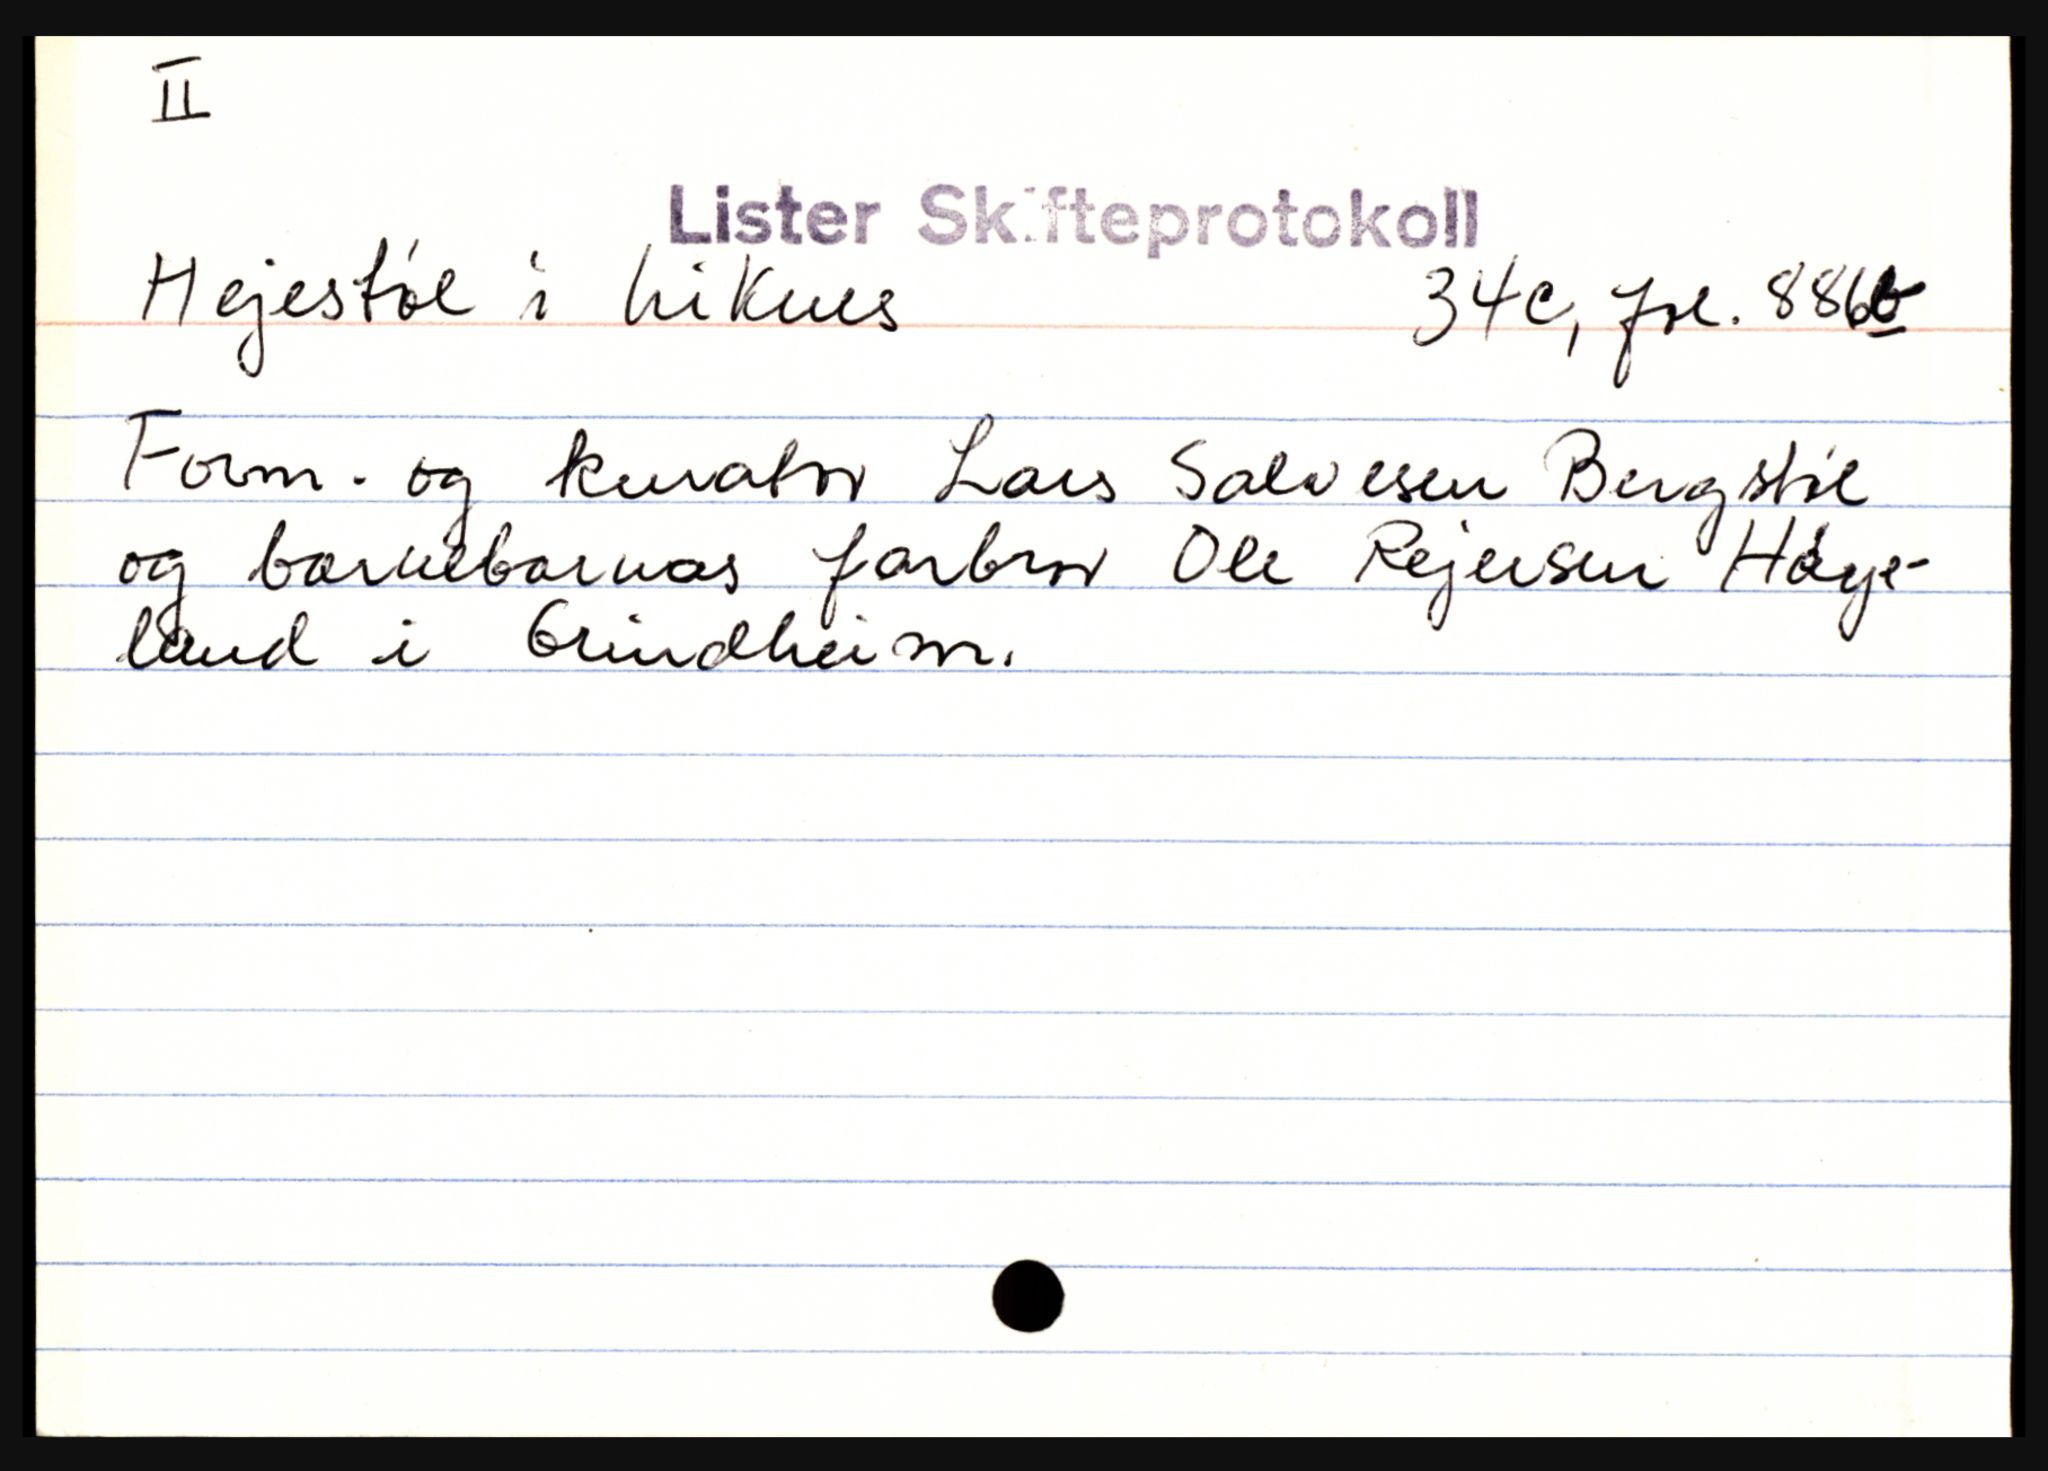 II
Lister Skifteprotokoll
Hejestøl i Liknes 34c, fol. 886b
Form. og kurator Lars Salvesen Bergstøl
og barnebarnas farbror Ole Rejersen Høye-
land i Grindheim.